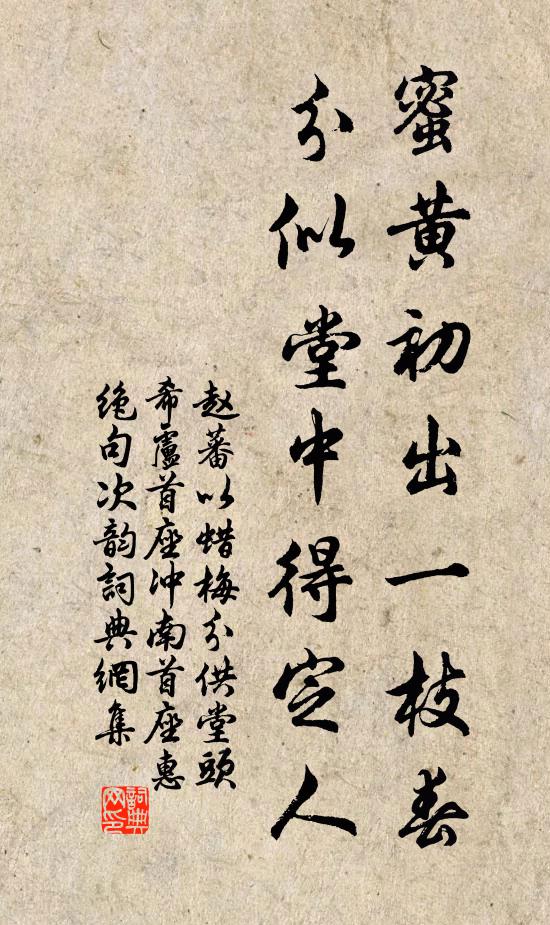 蜜黄初出一枝春
分似堂中得定人
赵蕃以蜡梅分供堂頭
希盧首座冲南首座惠
绝句次韵詞典網集
詞典
网印